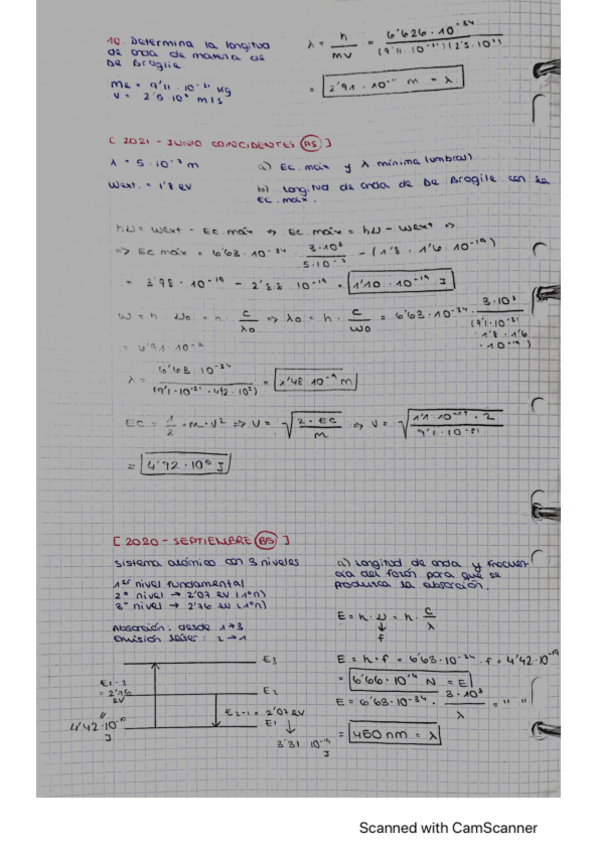 10. Determina la longitud
de onda de materia de
De Broglie.
λ = h / mv = 6'626 · 10⁻³⁴ / (9'11 · 10⁻³¹)(2'5 · 10⁷)
me = 9'11 · 10⁻³¹ kg
v = 2'5 · 10⁷ m/s
= 2'91 · 10⁻¹¹ m = λ
[ 2021 - JUNIO COINCIDENTES A5 ]
λ = 5 · 10⁻⁷ m
a) Ec. máx y λ mínima (umbral).
Wext. = 1'8 eV
b) Longitud de onda de De Broglie con la
Ec. máx.
hν = Wext - Ec. máx ⇒ Ec. máx = hν - Wext ⇒
⇒ Ec máx = 6'63 · 10⁻³⁴ · 3·10⁸ / 5·10⁻⁷ - (1'8 · 1'6 · 10⁻¹⁹)
= 3'98 · 10⁻¹⁹ - 2'88 · 10⁻¹⁹ = 1'10 · 10⁻¹⁹ J
ω = h · ν₀ = h · c / λ₀ ⇒ λ₀ = h · c / W₀ = 6'63 · 10⁻³⁴ · 3·10⁸ / (9'1·10⁻³¹ · 1'8 · 1'6 · 10⁻¹⁹)
= 6'91 · 10⁻⁷
λ = 6'63 · 10⁻³⁴ / (9'1·10⁻³¹ · 4'92 · 10⁵) = 1'48 10⁻⁹ m
EC = 1/2 · m · v² ⇒ v = √(2 · EC / m) ⇒ v = √(1'1 · 10⁻¹⁹ · 2 / 9'1 · 10⁻³¹)
= 4'92 · 10⁵ J
[ 2020 - SEPTIEMBRE B5 ]
Sistema atómico con 3 niveles
1er nivel fundamental
2º nivel → 2'07 eV (1ºn)
3º nivel → 2'76 eV (1ºn)
Absorción: desde 1→3
Emisión láser: 2→1
a) Longitud de onda y frecuen
cia del fotón para que se
produzca la absorción.
E = h · ν = h · c / λ
f
E = h · f = 6'63 · 10⁻³⁴ · f = 4'42·10⁻¹⁹
= 6'66 · 10¹⁴ N = E
E = 6'63·10⁻³⁴ · 3·10⁸ / λ = " "
= 450 nm = λ
E3
E1-3
= 2'76
eV
E2
E2-1 = 2'07 eV
E1
4'42·10⁻¹⁹
J
3'31 10⁻¹⁹
J
Scanned with CamScanner